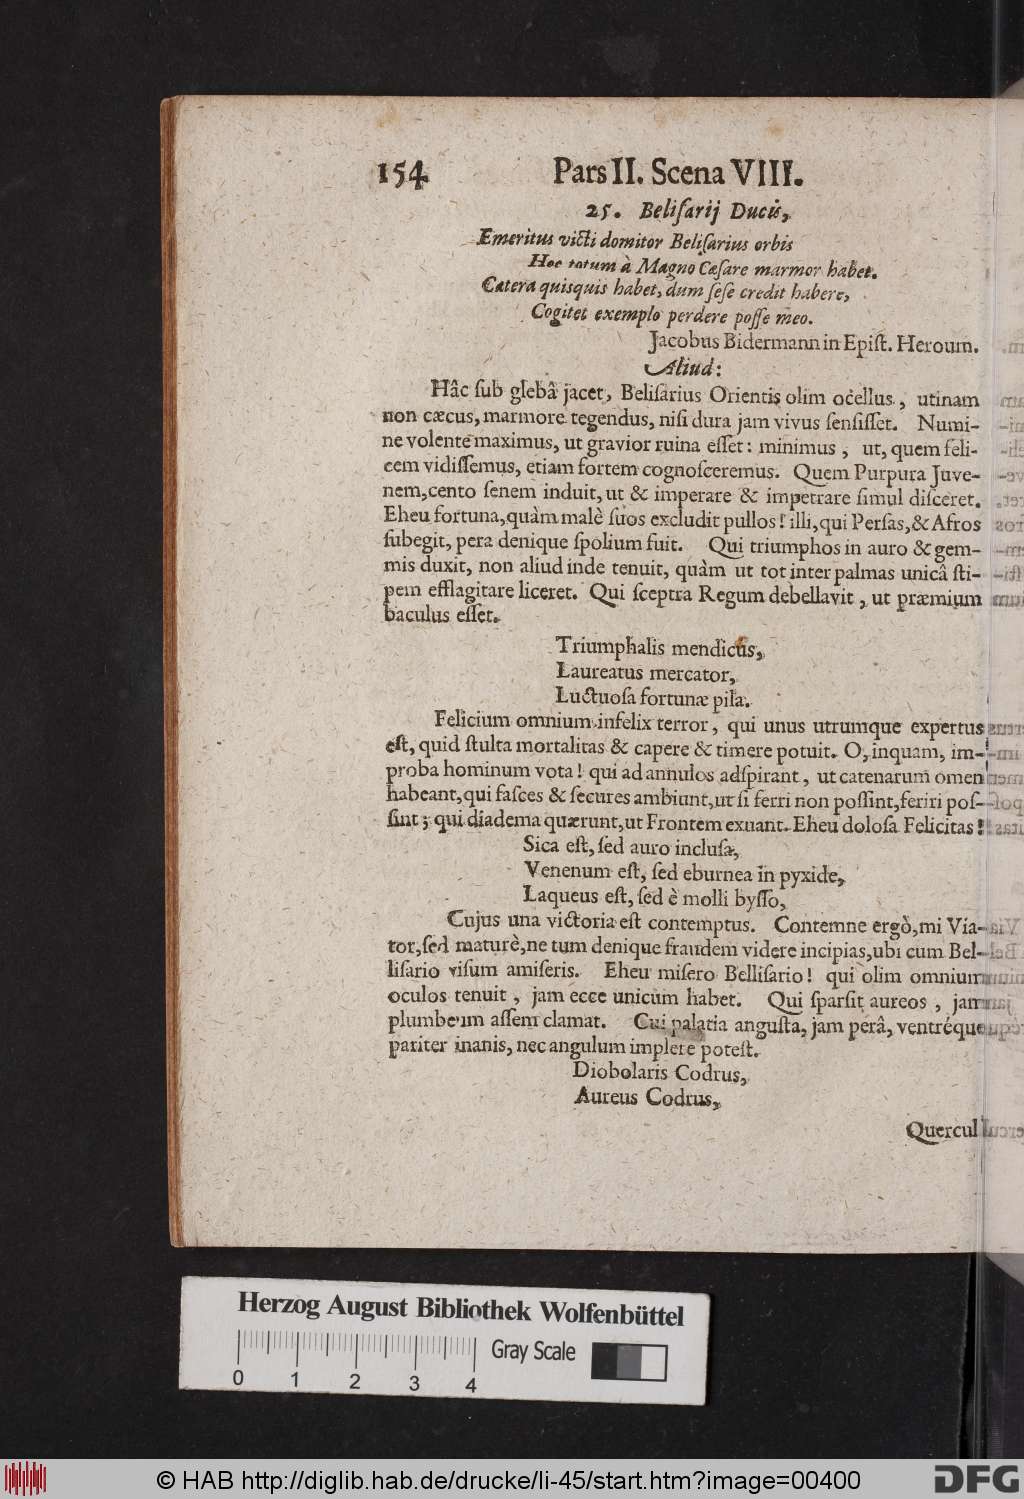 154 Pars II. Scena VIII.
25. Beliſarij Ducis,
Emeritus victi domitor Beliſarius orbis
Hoc totum à Magno Cæſare marmor habet.
Cætera quisquis habet, dum ſeſe credit habere,
Cogitet exemplo perdere poſſe meo.
Jacobus Bidermann in Epiſt. Heroum.
Aliud:
Hâc ſub glebâ jacet, Beliſarius Orientis olim ocellus, utinam
non cæcus, marmore tegendus, niſi dura jam vivus ſenſiſſet. Numi-
ne volente maximus, ut gravior ruina eſſet: minimus, ut, quem feli-
cem vidiſſemus, etiam fortem cognoſceremus. Quem Purpura Juve-
nem, cento ſenem induit, ut & imperare & impetrare ſimul diſceret.
Eheu fortuna, quàm malè ſuos excludit pullos! illi, qui Perſas, & Afros
ſubegit, pera denique ſpolium fuit. Qui triumphos in auro & gem-
mis duxit, non aliud inde tenuit, quàm ut tot inter palmas unicâ ſti-
pem efflagitare liceret. Qui ſceptra Regum debellavit, ut præmium
baculus eſſet.
Triumphalis mendicus,
Laureatus mercator,
Luctuoſa fortunæ pila.
Felicium omnium infelix terror, qui unus utrumque expertus
eſt, quid ſtulta mortalitas & capere & timere potuit. O, inquam, im-
proba hominum vota! qui ad annulos adſpirant, ut catenarum omen
habeant, qui faſces & ſecures ambiunt, ut ſi ferri non poſſint, feriri poſ-
ſint; qui diadema quærunt, ut Frontem exuant. Eheu doloſa Felicitas!
Sica eſt, ſed auro incluſa,
Venenum eſt, ſed eburnea in pyxide,
Laqueus eſt, ſed è molli byſſo,
Cujus una victoria eſt contemptus. Contemne ergò, mi Via-
tor, ſed maturè, ne tum denique fraudem videre incipias, ubi cum Bel-
liſario viſum amiſeris. Eheu miſero Belliſario! qui olim omnium
oculos tenuit, jam ecce unicum habet. Qui ſparſit aureos, jam
plumbeum aſſem clamat. Cui palatia anguſta, jam perâ, ventréque
pariter inanis, nec angulum implere poteſt.
Diobolaris Codrus,
Aureus Codrus,
Quercul
Herzog August Bibliothek Wolfenbüttel
Gray Scale
0 1 2 3 4
© HAB http://diglib.hab.de/drucke/li-45/start.htm?image=00400
DFG